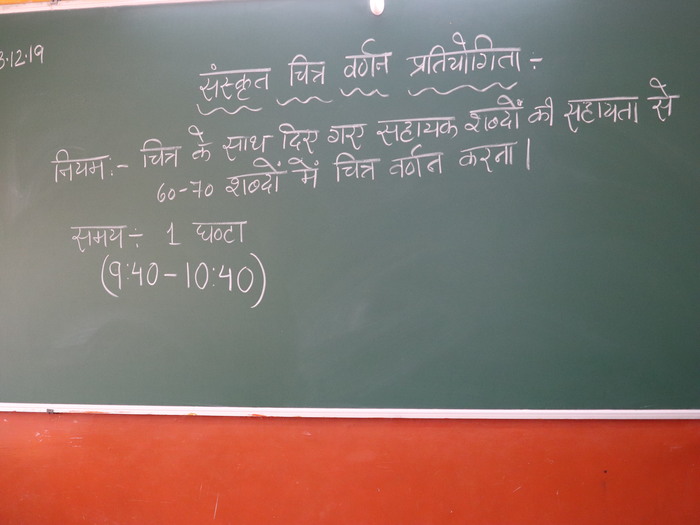 3.12.19
संस्कृत चित्र वर्णन प्रतियोगिता :-
नियम :- चित्र के साथ दिए गए सहायक शब्दों की सहायता से
60-70 शब्दों में चित्र वर्णन करना।
समय :- 1 घण्टा
(9:40 - 10:40)